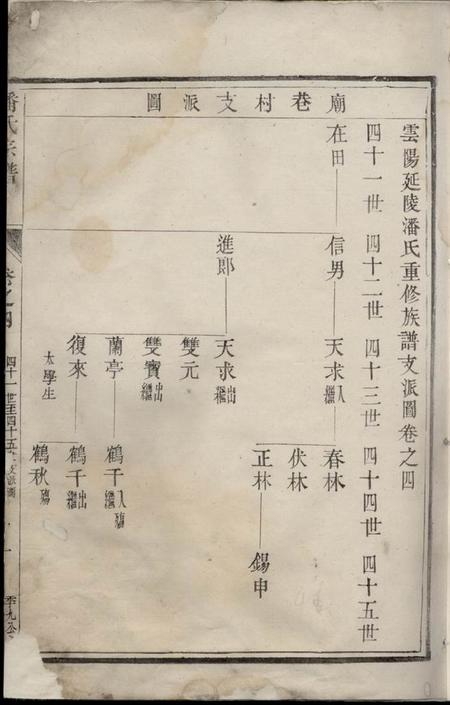 雲陽延陵潘氏重修族譜支派圖卷之四
廟巷村支派圖
四十一世 四十二世 四十三世 四十四世 四十五世
在田 信男 天求入繼 春林
伏林
正林 錫申
進郎 天求出繼
雙元
雙寶出繼
蘭亭 鶴千入繼殤
復來 鶴千出繼
太學生 鶴秋殤
潘氏宗譜
卷之四
四十一世至四十五世支派圖